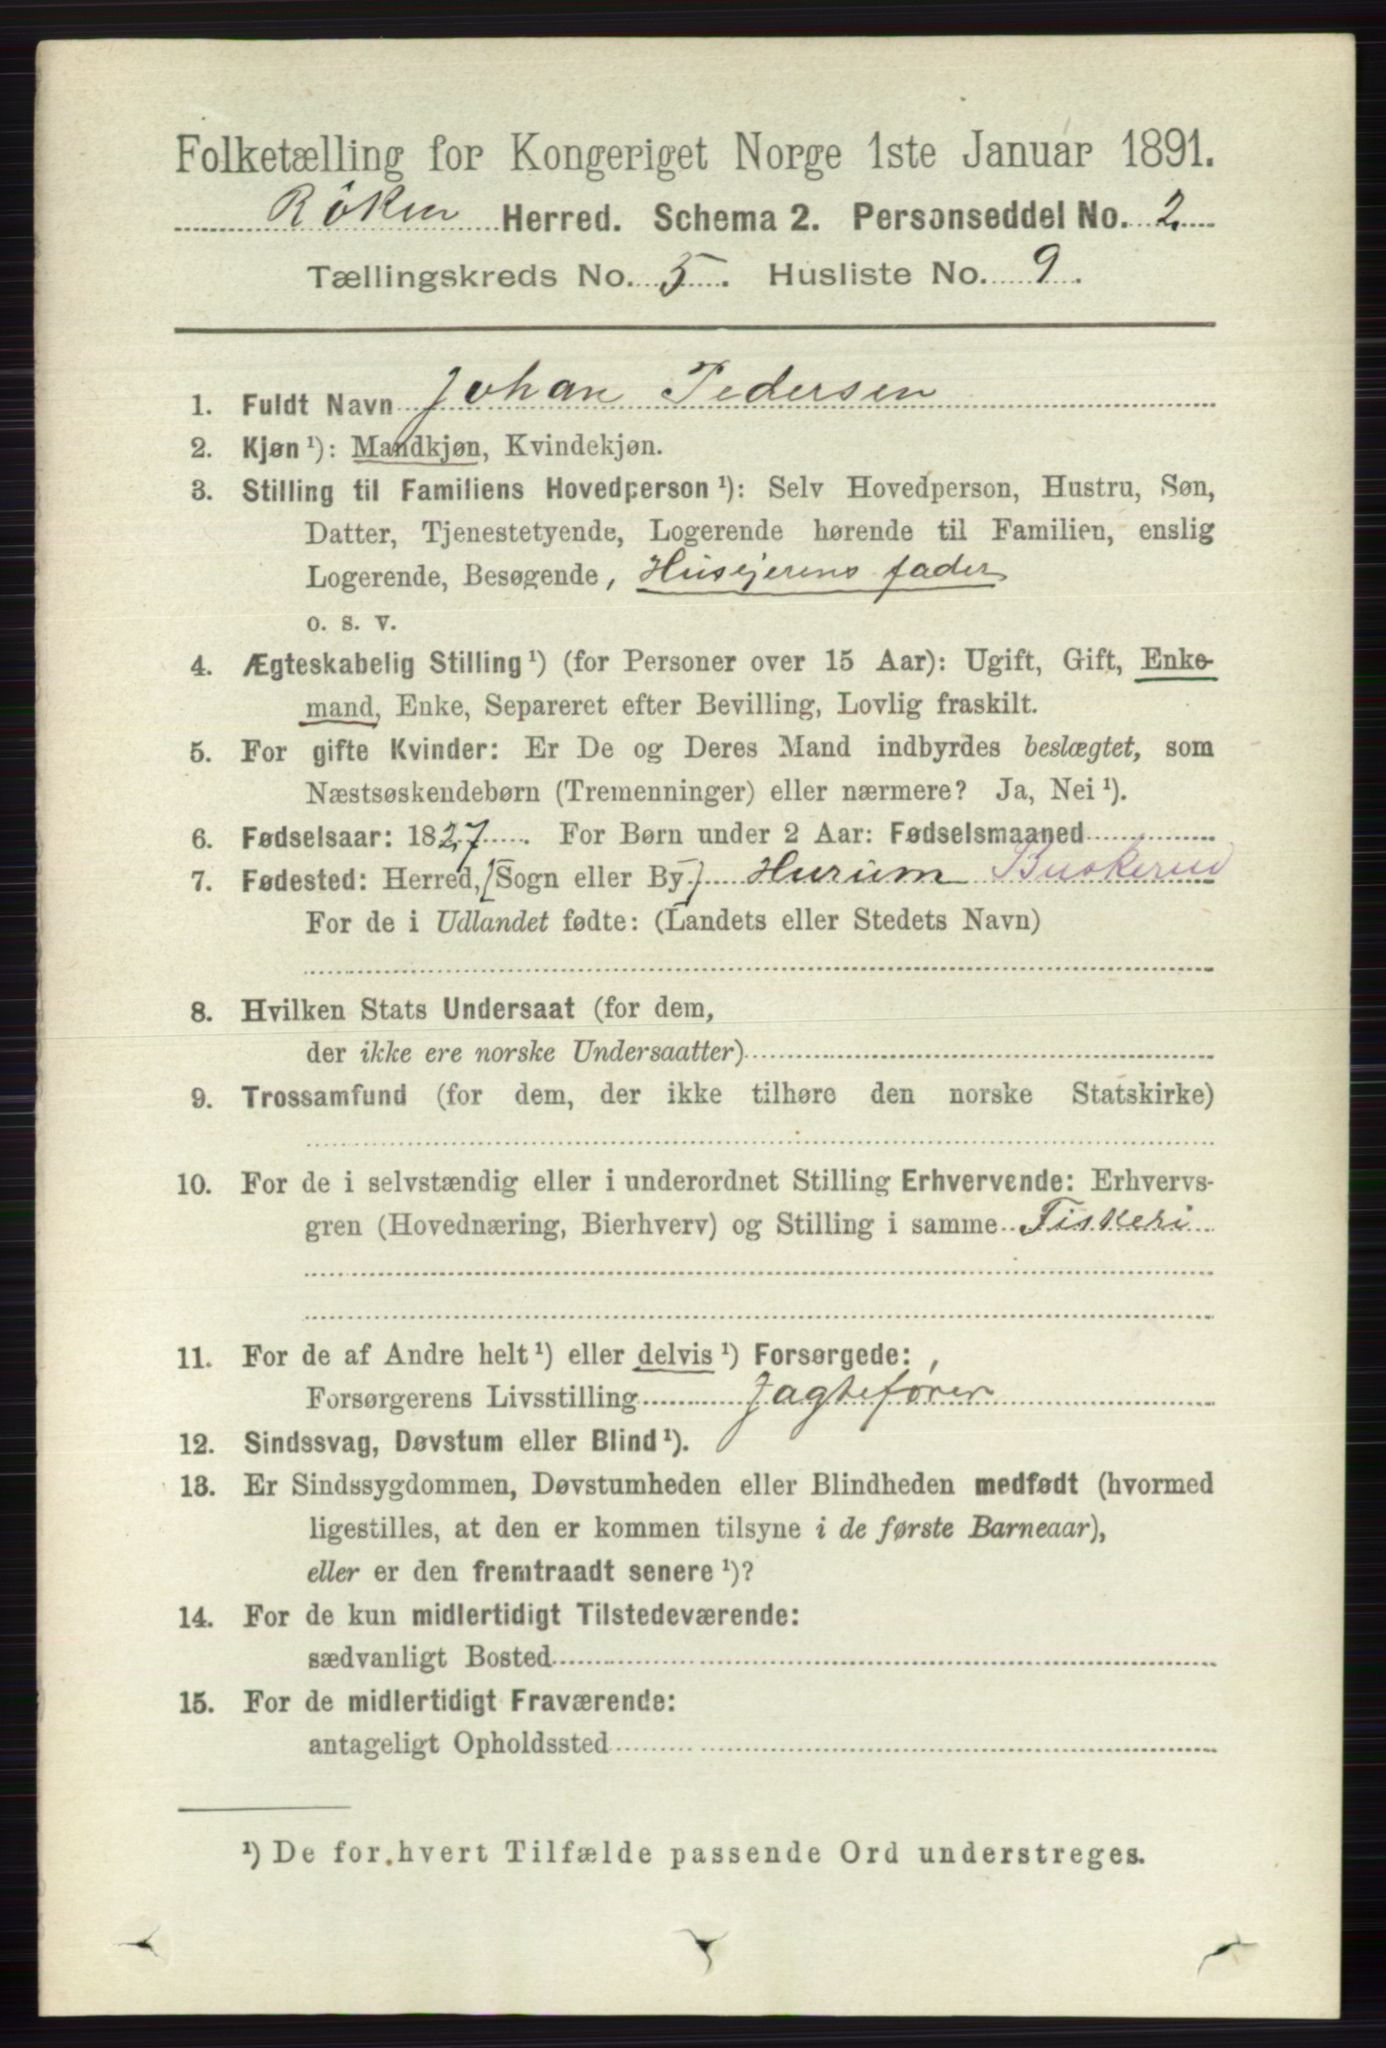 Folketælling for Kongeriget Norge 1ste Januar 1891.
Röken Herred. Schema 2. Personseddel No. 2.
Tællingskreds No. 5. Husliste No. 9.
1. Fuldt Navn Johan Pedersen
2. Kjøn¹): Mandkjøn, Kvindekjøn.
3. Stilling til Familiens Hovedperson¹): Selv Hovedperson, Hustru, Søn,
Datter, Tjenestetyende, Logerende hørende til Familien, enslig
Logerende, Besøgende, Husejerens fader
o. s. v.
4. Ægteskabelig Stilling¹) (for Personer over 15 Aar): Ugift, Gift, Enke-
mand, Enke, Separeret efter Bevilling, Lovlig fraskilt.
5. For gifte Kvinder: Er De og Deres Mand indbyrdes beslægtet, som
Næstsøskendebørn (Tremenninger) eller nærmere? Ja, Nei¹).
6. Fødselsaar: 1827. For Børn under 2 Aar: Fødselsmaaned
7. Fødested: Herred, [Sogn eller By] Hurum Buskerud
For de i Udlandet fødte: (Landets eller Stedets Navn)
8. Hvilken Stats Undersaat (for dem,
der ikke ere norske Undersaatter)
9. Trossamfund (for dem, der ikke tilhøre den norske Statskirke)
10. For de i selvstændig eller i underordnet Stilling Erhvervende: Erhvervs-
gren (Hovednæring, Bierhverv) og Stilling i samme Fiskeri
11. For de af Andre helt¹) eller delvis¹) Forsørgede:
Forsørgerens Livsstilling Jagtefører
12. Sindssvag, Døvstum eller Blind¹).
13. Er Sindssygdommen, Døvstumheden eller Blindheden medfødt (hvormed
ligestilles, at den er kommen tilsyne i de første Barneaar),
eller er den fremtraadt senere¹)?
14. For de kun midlertidigt Tilstedeværende:
sædvanligt Bosted
15. For de midlertidigt Fraværende:
antageligt Opholdssted
¹) De for hvert Tilfælde passende Ord understreges.